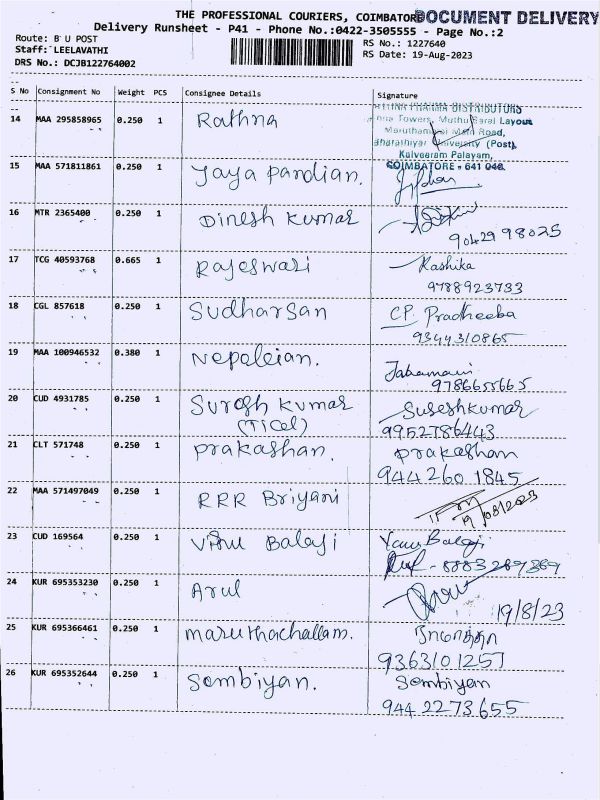 THE PROFESSIONAL COURIERS, COIMBATORE
DOCUMENT DELIVERY
Delivery Runsheet - P41 - Phone No.:0422-3505555 - Page No.:2
Route: B U POST
RS No.: 1227640
Staff: LEELAVATHI
RS Date: 19-Aug-2023
DRS No.: DCJB122764002
S No Consignment No Weight PCS Consignee Details Signature
14 MAA 295858965 0.250 1 Rathna
Towers, Muthu Layout
Main Road,
University (Post),
Kalveeram Palayam,
COIMBATORE - 641 046.
15 MAA 571811861 0.250 1 Jaya Pandian.
16 MTR 2365400 0.250 1 Dinesh Kumar
9042998025
17 TCG 40593768 0.665 1 Rajeswari Kashika
9788923733
18 CGL 857618 0.250 1 Sudharsan C.P. Pradheeba
9344310865
19 MAA 100946532 0.380 1 Nepoleian.
9786655665
20 CUD 4931785 0.250 1 Suresh Kumar Sureshkumar
(Ticel) 9952786443
21 CLT 571748 0.250 1 Prakashan. Prakashan
944260 1845
22 MAA 571497049 0.250 1 RRR Briyani
19/08/2023
23 CUD 169564 0.250 1 Balaji Balaji
8883289369
24 KUR 695353230 0.250 1 Arul
19/8/23
25 KUR 695366461 0.250 1 maruthachallam.
9363101257
26 KUR 695352644 0.250 1 Sembiyan. Sembiyan
944 2273655